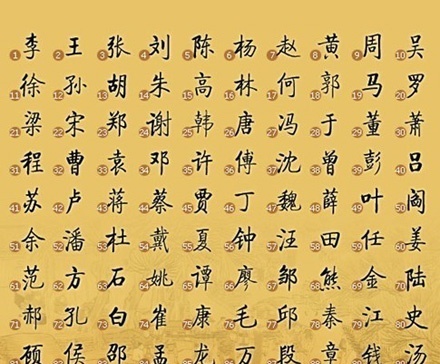 1李 2王 3张 4刘 5陈 6杨 7赵 8黄 9周 10吴
11徐 12孙 13胡 14朱 15高 16林 17何 18郭 19马 20罗
21梁 22宋 23郑 24谢 25韩 26唐 27冯 28于 29董 30萧
31程 32曹 33袁 34邓 35许 36傅 37沈 38曾 39彭 40吕
41苏 42卢 43蒋 44蔡 45贾 46丁 47魏 48薛 49叶 50阎
51余 52潘 53杜 54戴 55夏 56钟 57汪 58田 59任 60姜
61范 62方 63石 64姚 65谭 66廖 67邹 68熊 69金 70陆
71郝 72孔 73白 74崔 75康 76毛 77邱 78秦 79江 80史
顾 侯 邵 孟 龙 万 段 章 钱 汤